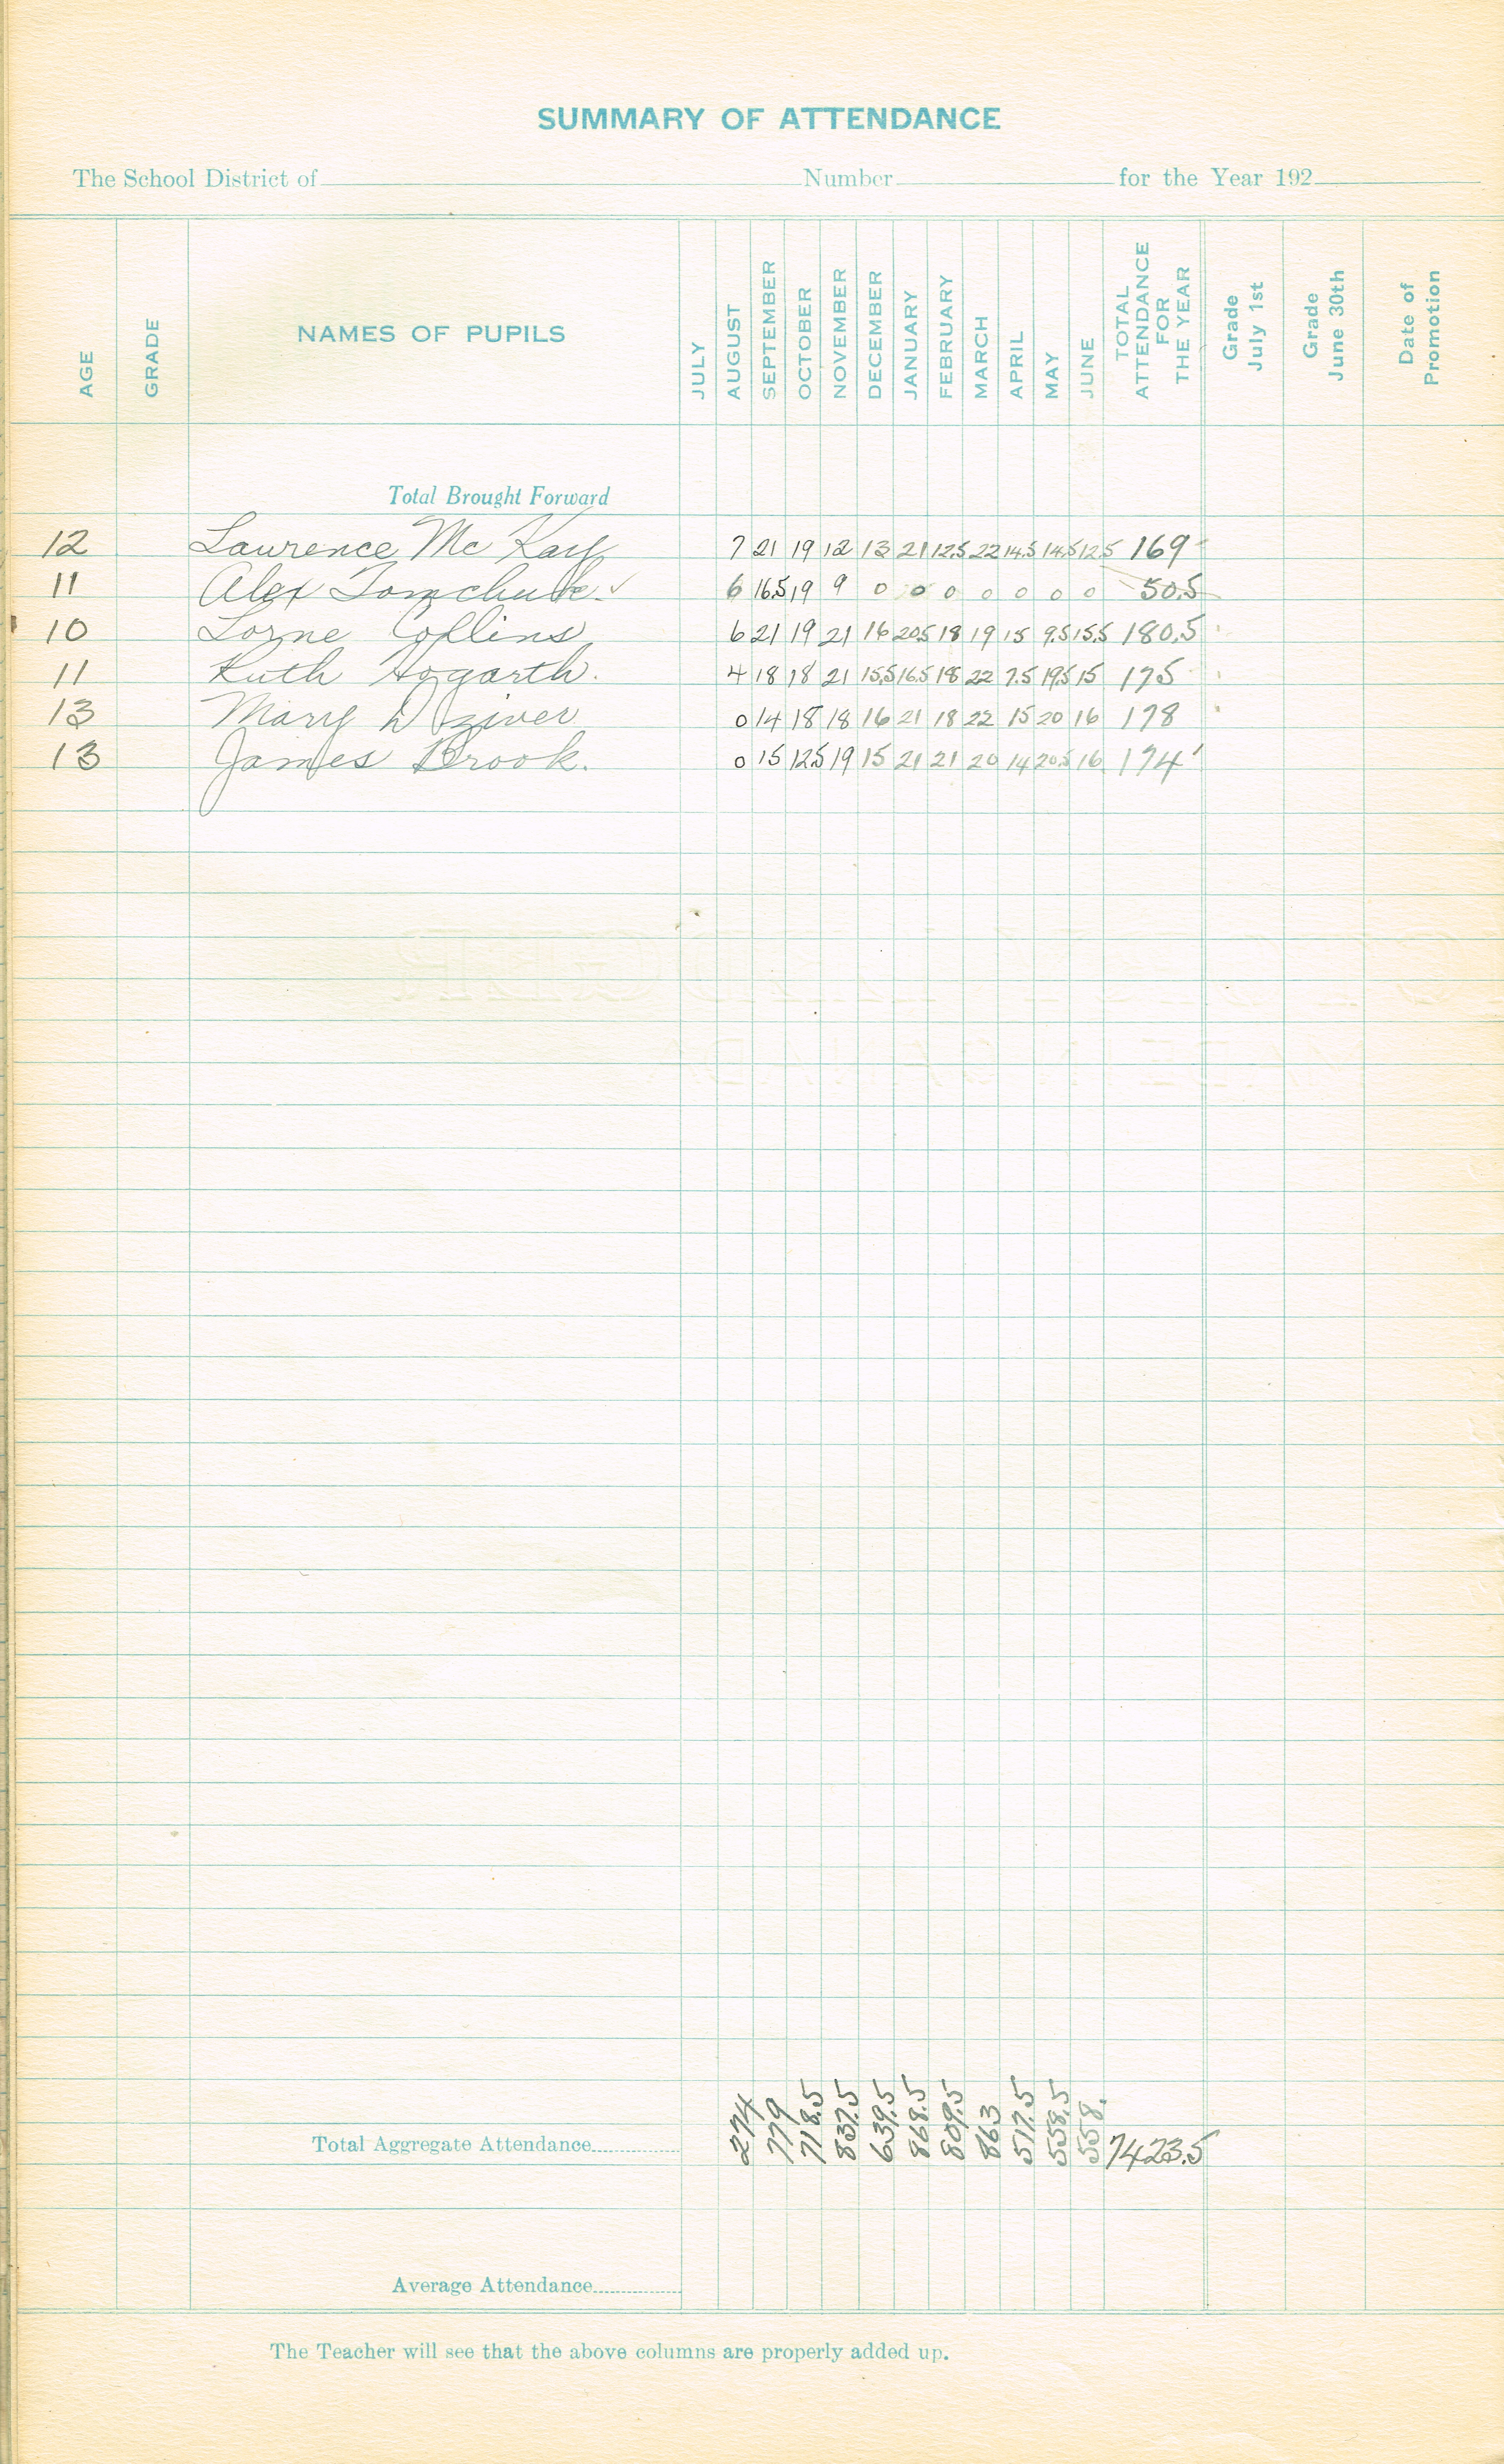 SUMMARY OF ATTENDANCE
The School District of Number for the Year 192
AGE GRADE NAMES OF PUPILS JULY AUGUST SEPTEMBER OCTOBER NOVEMBER DECEMBER JANUARY FEBRUARY MARCH APRIL MAY JUNE TOTAL ATTENDANCE FOR THE YEAR Grade July 1st Grade June 30th Date of Promotion
Total Brought Forward
12 Lawrence Mc Kay 7 21 19 12 13 21 12.5 22 14.5 14.5 12.5 169
11 Alex Tomchuk. ✓ 6 16.5 19 9 0 0 0 0 0 0 0 50.5
10 Lorne Collins 6 21 19 21 16 20.5 18 19 15 9.5 15.5 180.5
11 Ruth Hogarth. 4 18 18 21 15.5 16.5 18 22 7.5 19.5 15 175
13 Mary 0 14 18 18 16 21 18 22 15 20 16 178
13 James Brook. 0 15 12.5 19 15 21 21 20 14 20.5 16 174
Total Aggregate Attendance 274 779 718.5 837.5 639.5 868.5 809.5 863 517.5 558.5 558. 7423.5
Average Attendance
The Teacher will see that the above columns are properly added up.